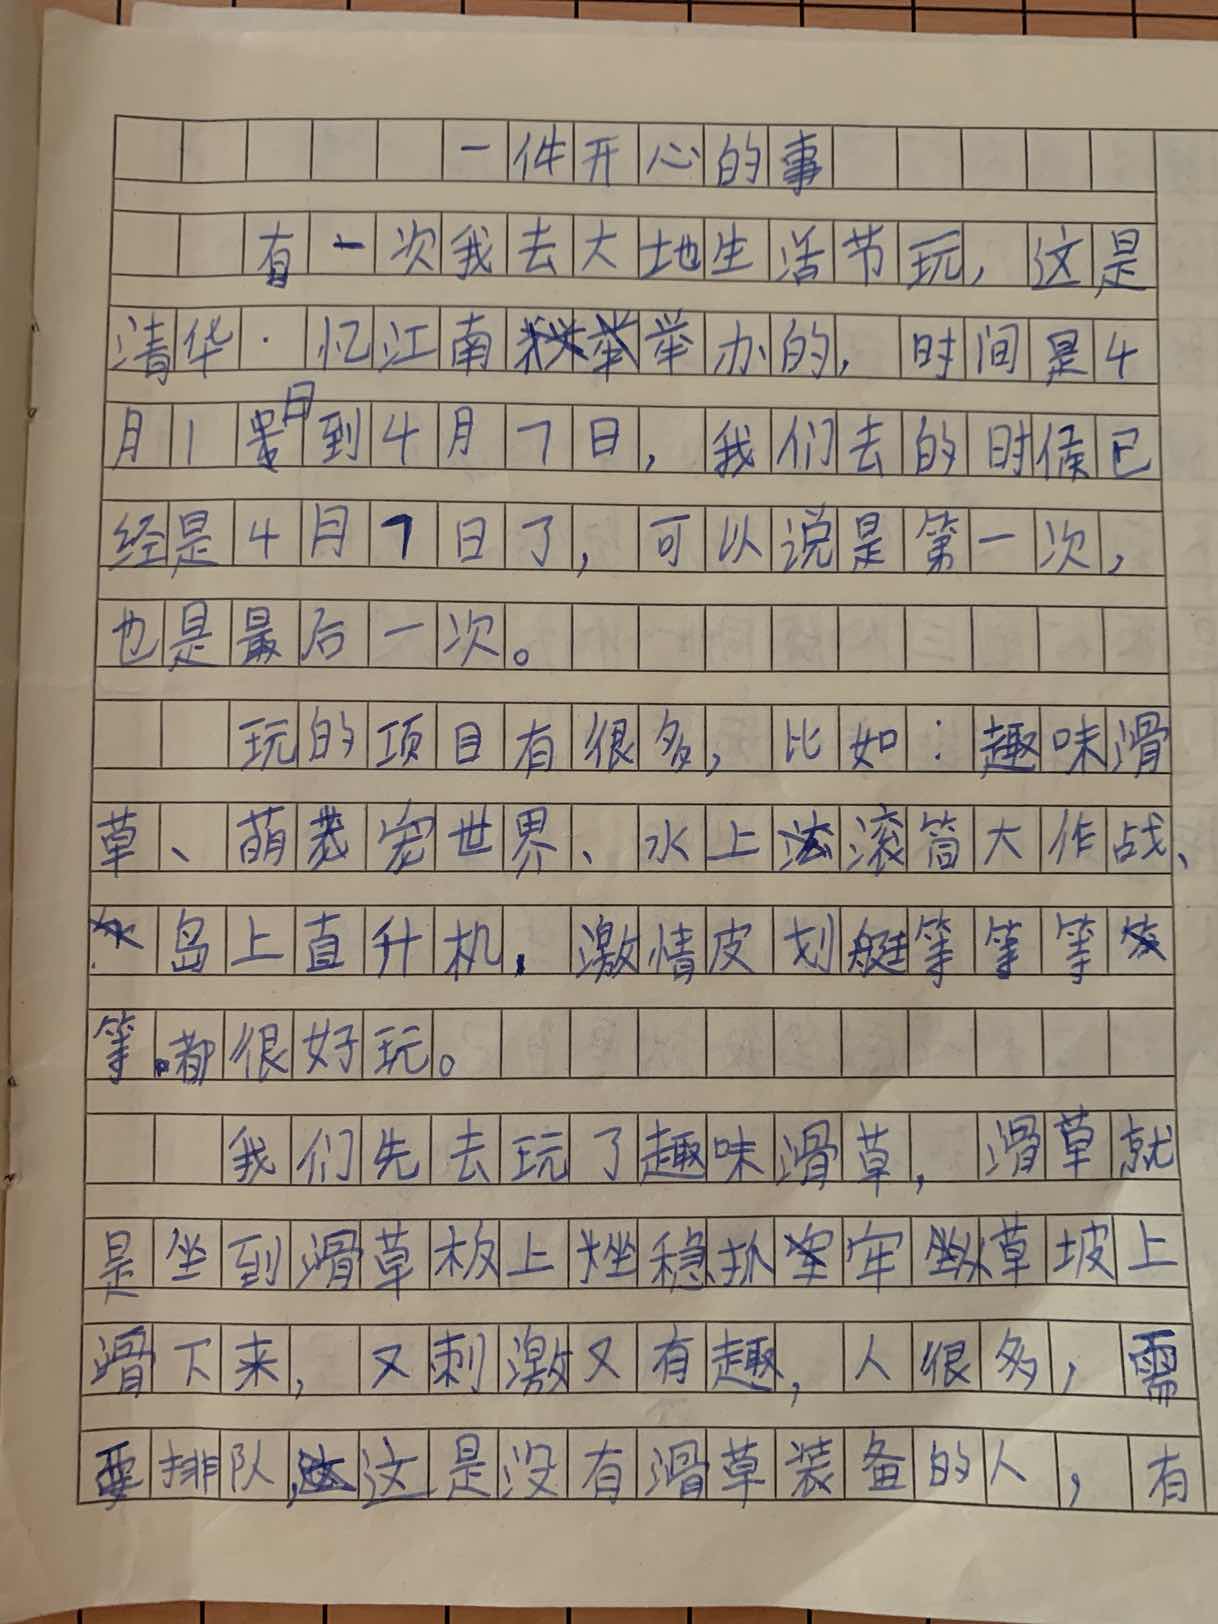 一件开心的事
有一次我去大地生活节玩，这是
清华·忆江南举办的，时间是4
月1日到4月7日，我们去的时候已
经是4月7日了，可以说是第一次，
也是最后一次。
玩的项目有很多，比如：趣味滑
草、萌宠世界、水上滚筒大作战、
岛上直升机，激情皮划艇等等等
等。都很好玩。
我们先去玩了趣味滑草，滑草就
是坐到滑草板上坐稳抓牢从草坡上
滑下来，又刺激又有趣，人很多，需
要排队，这是没有滑草装备的人，有